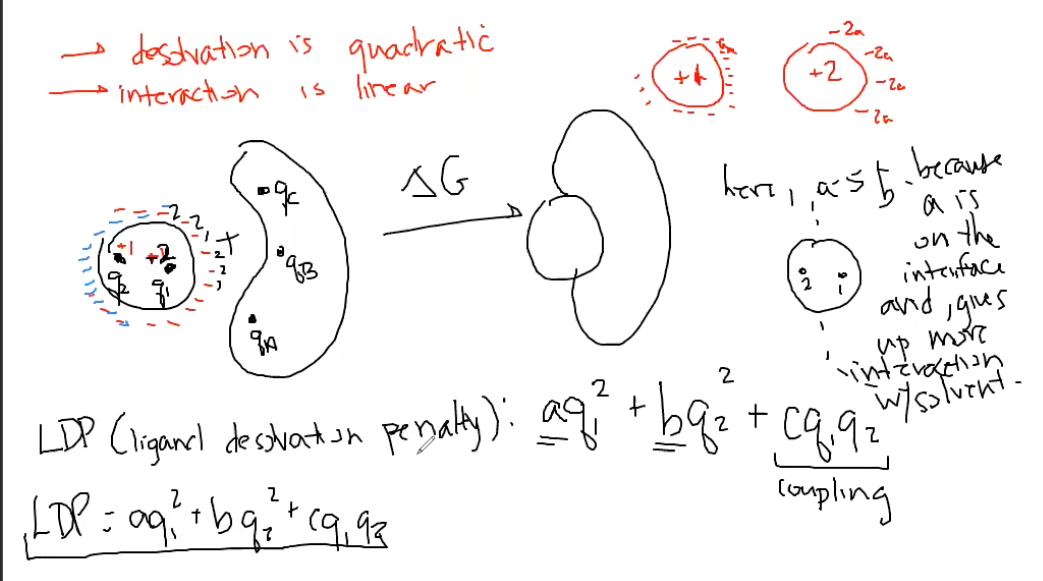 → desolvation is quadratic
→ interaction is linear
+4
+2
-2a
-2a
-2a
-2a
ΔG
qC
qB
qA
+
-2
-2
+1
+2
q2 q1
here, a > b because
a is
on the
interface
and, gives
up more
interaction
w/ solvent.
2 1
LDP (ligand desolvation penalty): aq₁² + bq₂² + cq₁q₂
coupling
LDP = aq₁² + bq₂² + cq₁q₂